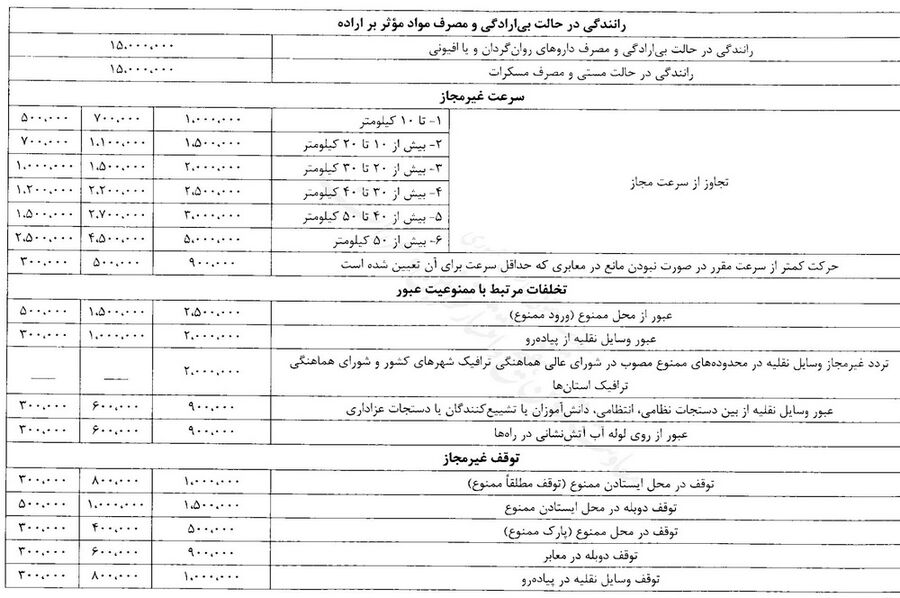 رانندگی در حالت بی‌ارادگی و مصرف مواد مؤثر بر اراده
رانندگی در حالت بی‌ارادگی و مصرف داروهای روان‌گردان و یا افیونی ۱۵,۰۰۰,۰۰۰
رانندگی در حالت مستی و مصرف مسکرات ۱۵,۰۰۰,۰۰۰
سرعت غیرمجاز
تجاوز از سرعت مجاز
۱- تا ۱۰ کیلومتر ۱,۰۰۰,۰۰۰ ۷۰۰,۰۰۰ ۵۰۰,۰۰۰
۲- بیش از ۱۰ تا ۲۰ کیلومتر ۱,۵۰۰,۰۰۰ ۱,۱۰۰,۰۰۰ ۷۰۰,۰۰۰
۳- بیش از ۲۰ تا ۳۰ کیلومتر ۲,۰۰۰,۰۰۰ ۱,۵۰۰,۰۰۰ ۱,۰۰۰,۰۰۰
۴- بیش از ۳۰ تا ۴۰ کیلومتر ۲,۵۰۰,۰۰۰ ۲,۲۰۰,۰۰۰ ۱,۲۰۰,۰۰۰
۵- بیش از ۴۰ تا ۵۰ کیلومتر ۳,۰۰۰,۰۰۰ ۲,۷۰۰,۰۰۰ ۱,۵۰۰,۰۰۰
۶- بیش از ۵۰ کیلومتر ۵,۰۰۰,۰۰۰ ۴,۵۰۰,۰۰۰ ۲,۵۰۰,۰۰۰
حرکت کمتر از سرعت مقرر در صورت نبودن مانع در معابری که حداقل سرعت برای آن تعیین شده است ۹۰۰,۰۰۰ ۵۰۰,۰۰۰ ۳۰۰,۰۰۰
تخلفات مرتبط با ممنوعیت عبور
عبور از محل ممنوع (ورود ممنوع) ۲,۵۰۰,۰۰۰ ۱,۵۰۰,۰۰۰ ۵۰۰,۰۰۰
عبور وسایل نقلیه از پیاده‌رو ۲,۰۰۰,۰۰۰ ۱,۰۰۰,۰۰۰ ۳۰۰,۰۰۰
تردد غیرمجاز وسایل نقلیه در محدوده‌های ممنوع مصوب در شورای عالی هماهنگی ترافیک شهرهای کشور و شورای هماهنگی ۲,۰۰۰,۰۰۰ — —
ترافیک استان‌ها
عبور وسایل نقلیه از بین دستجات نظامی، انتظامی، دانش‌آموزان یا تشییع‌کنندگان یا دستجات عزاداری ۹۰۰,۰۰۰ ۶۰۰,۰۰۰ ۳۰۰,۰۰۰
عبور از روی لوله آب آتش‌نشانی در راه‌ها ۹۰۰,۰۰۰ ۶۰۰,۰۰۰ ۳۰۰,۰۰۰
توقف غیرمجاز
توقف در محل ایستادن ممنوع (توقف مطلقاً ممنوع) ۱,۰۰۰,۰۰۰ ۸۰۰,۰۰۰ ۳۰۰,۰۰۰
توقف دوبله در محل ایستادن ممنوع ۱,۵۰۰,۰۰۰ ۱,۰۰۰,۰۰۰ ۵۰۰,۰۰۰
توقف در محل ممنوع (پارک ممنوع) ۵۰۰,۰۰۰ ۴۰۰,۰۰۰ ۳۰۰,۰۰۰
توقف دوبله در معابر ۹۰۰,۰۰۰ ۶۰۰,۰۰۰ ۳۰۰,۰۰۰
توقف وسایل نقلیه در پیاده‌رو ۱,۰۰۰,۰۰۰ ۸۰۰,۰۰۰ ۳۰۰,۰۰۰